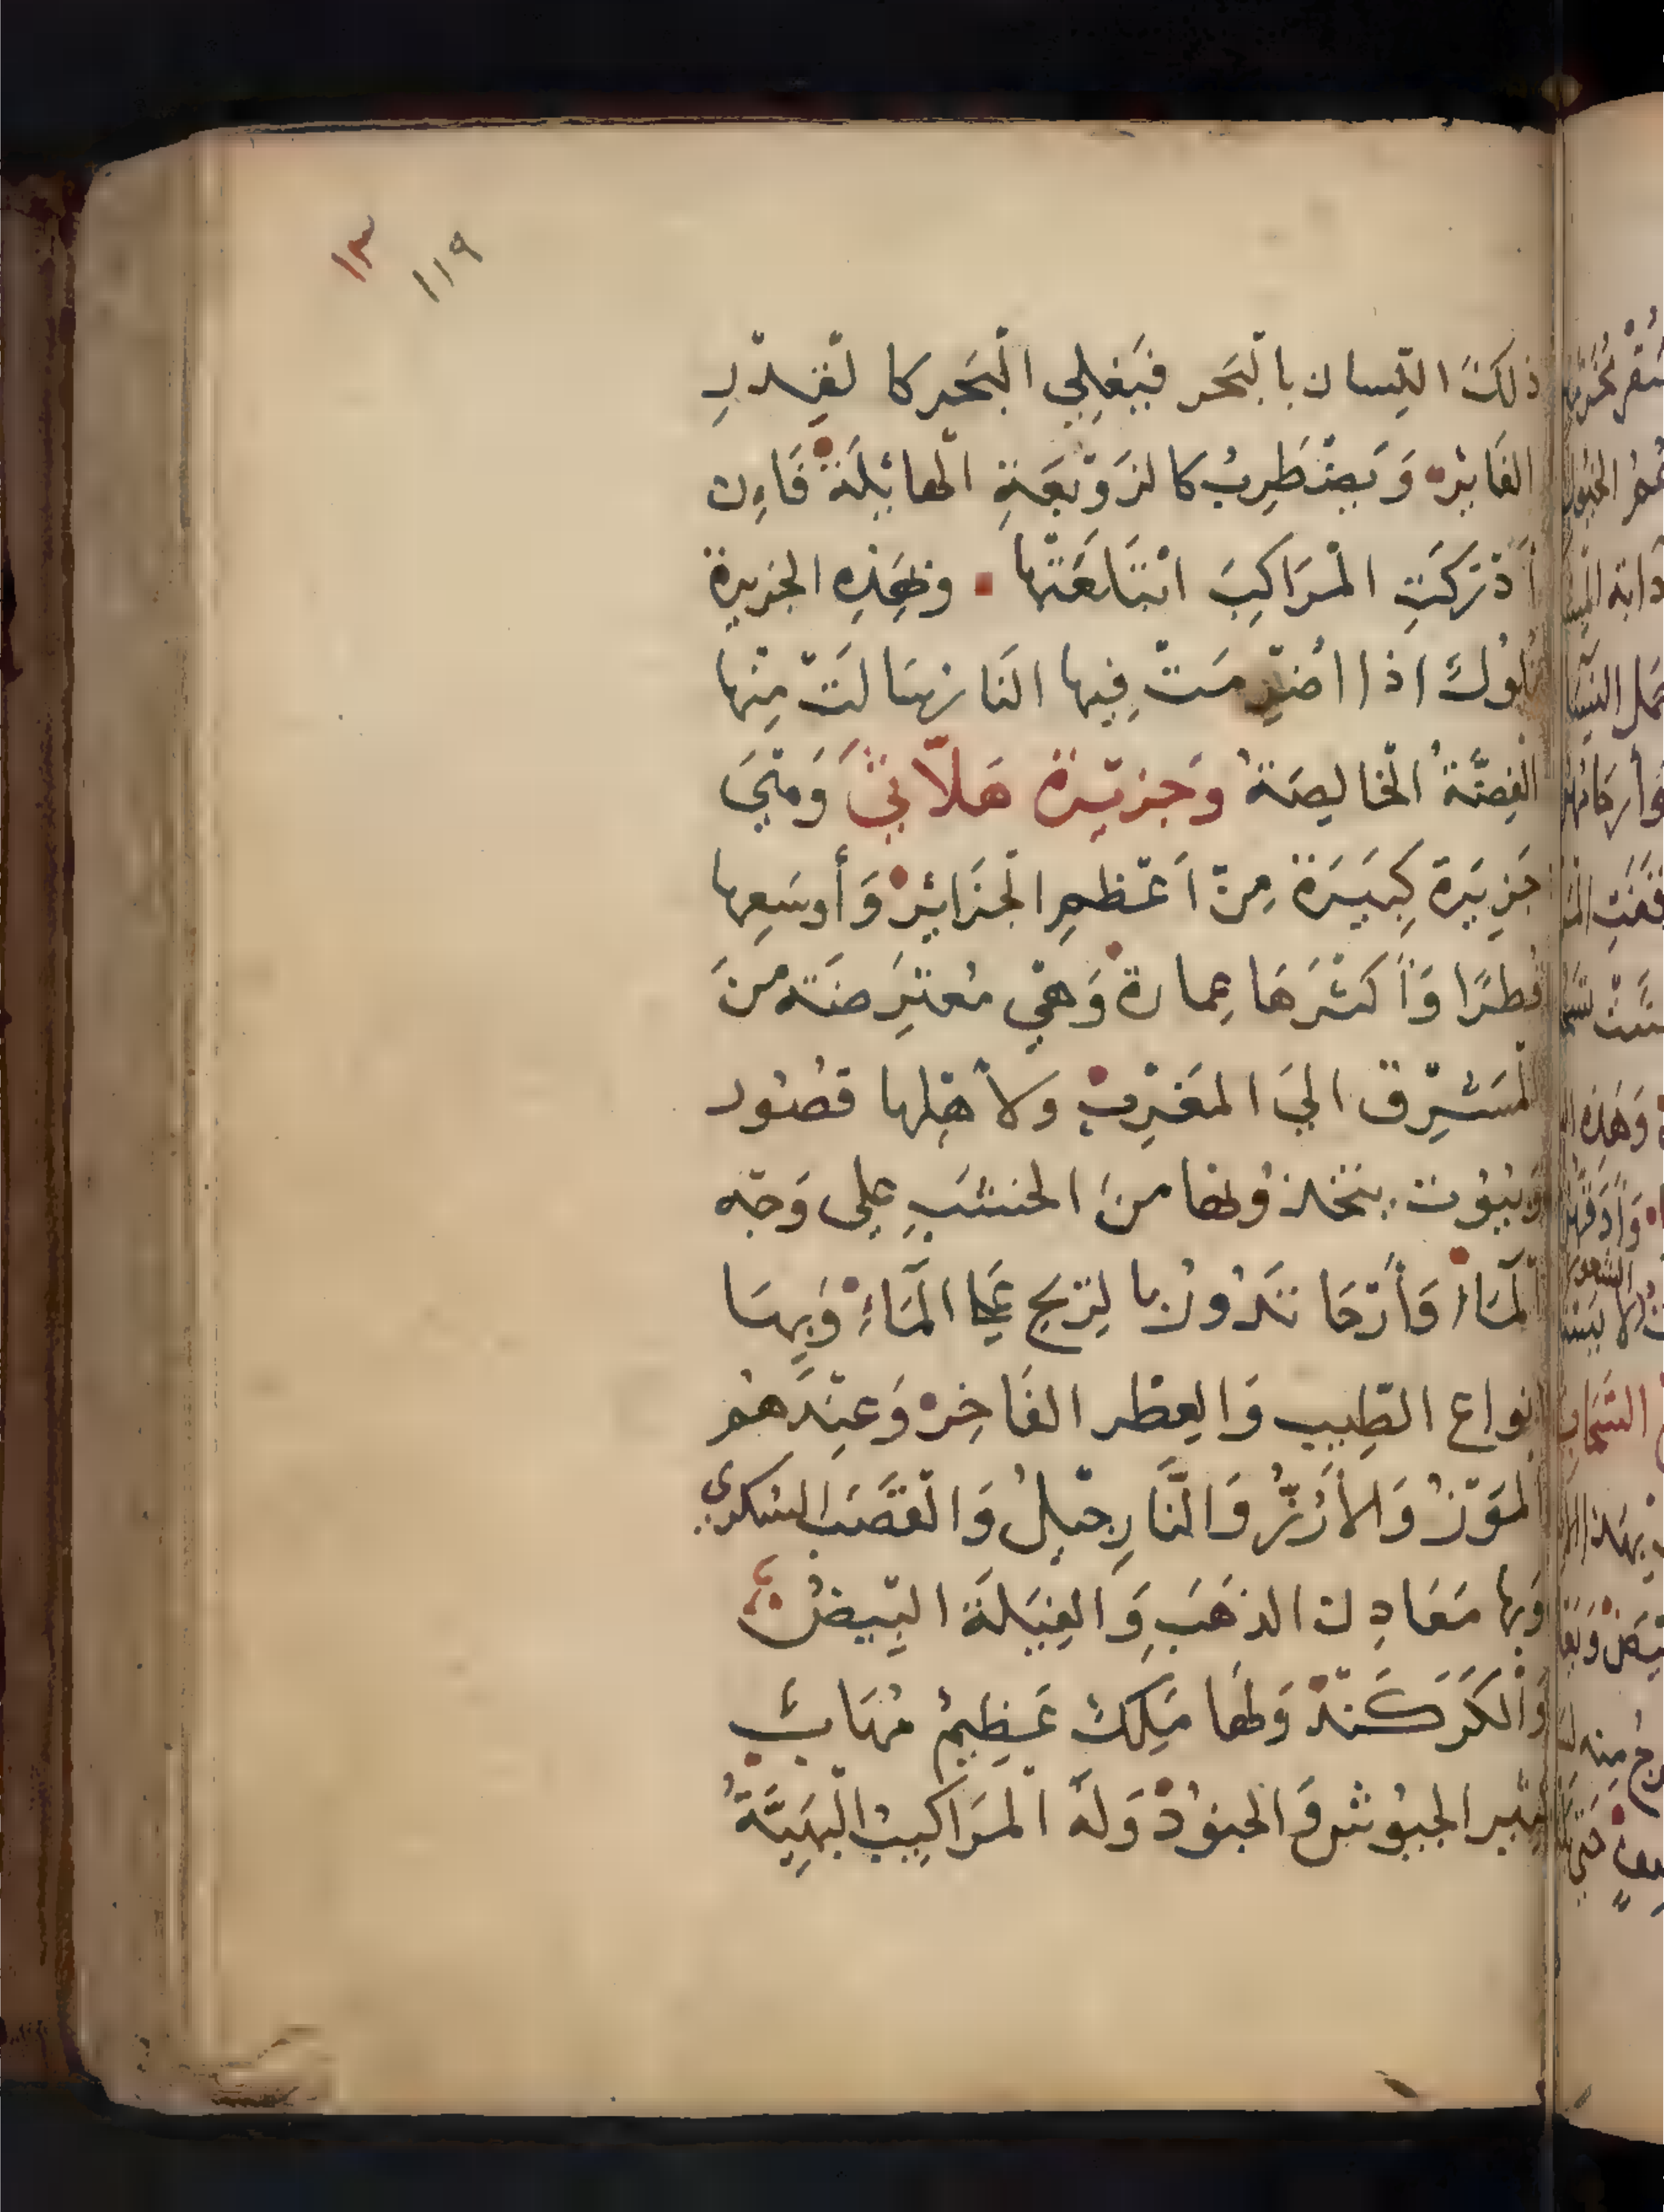 ١٣
١١٩
ذلك اللِسان بالْبَحر فَيَغلِي الْبَحر كا لْقِدْرِ
الفَايْره وَيَضْطَرِبُ كا لزَوْبَعَةِ الْهايْلَة فَاِن
أَدْرَكَتِ الْمَرَاكِبَ ابْتَلَعَتْها وَبهَذِه الجزيرة
تلوُكَ اذا اضْرِمَتْ فِيها النَار سَالَتْ مِنْها
الفِضَّةُ الْخَالِصَةُ وَجَزيْرة هَلاَّنيَ وَهْيَ
جَزِيَرة كَبيَرَة مِنْ اَعْظمِ الْجَزَايْر وَأوسَعِها
قُطرًا وَأَكثَرهَا عِمارة وَهْي مُعْتَرِضَة منَ
لْمَشْرِق اليَ المَغْرِب ولأهْلِها قصُور
وَبيُوت يتخذوُنها منَ الخشَبِ على وَجْه
الْمَاءِ وَأَرْحَا تَدُورُ با لرْيح عَلَى الْمَاءِ وَبِهَا
انواع الطِيب وَالعِطْر الفَاخِر وَعِنْدَهُم
الْمَوْزُ وَالأرُزُّ وَالنَّارِجْيلُ وَالْقصَب السُكري
وَبها مَعَادِن الذهَبَ وَالفِيَلَة البِيضُ
وَالْكَرَكَنْد وَلهَا مَلِكٌ عَظِيمُ مُهَابٌ
كثير الجيُوش وَالجنوُد وَلهُ الْمَرَاكِبُ الْبَهِيَّةُ